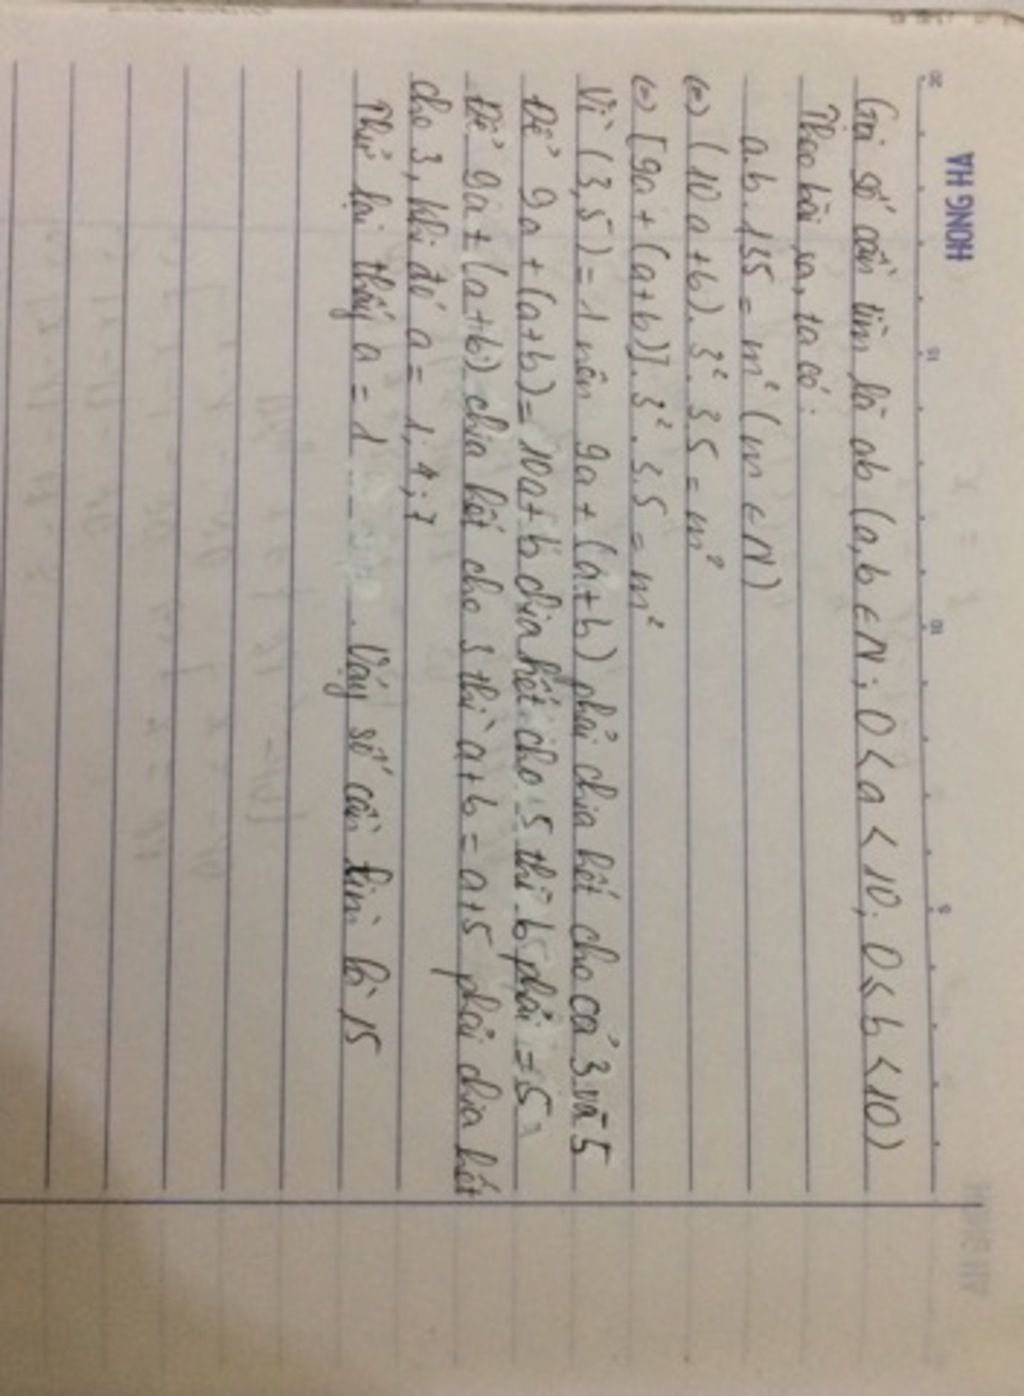 HONG HA
20 15 10 5
Gọi số cần tìm là ab (a,b ∈ N; 0 < a < 10; 0 ≤ b < 10)
Theo bài ra, ta có:
a.b.135 = m² (m ∈ N)
(=) (10a+b).3².3.5 = m²
(=) [9a+(a+b)].3².3.5 = m²
Vì (3,5)=1 nên 9a+(a+b) phải chia hết cho cả 3 và 5
Để 9a+(a+b)= 10a+b chia hết cho 5 thì b phải = 5
Để 9a+(a+b) chia hết cho 3 thì a+b = a+5 phải chia hết
cho 3, khi đó a = 1;4;7
Thử lại thấy a = 1 . Vậy số cần tìm là 15